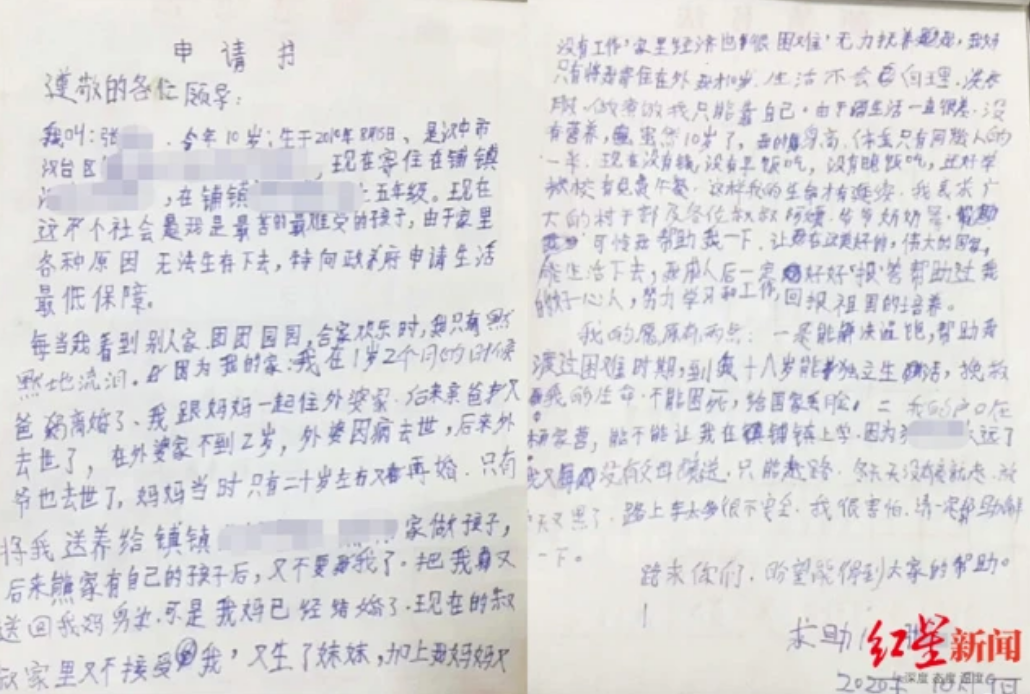 申请书
尊敬的各位领导:
我叫:张 今年10岁;生于2010年8月15日,是汉中市
汉台区 ,现在寄住在铺镇
,在铺镇 上五年级。现在
这个社会是我是最苦的最难受的孩子,由于家里
各种原因无法生存下去,特向政府申请生活
最低保障。
每当我看到别人家团团园园,合家欢乐时,我只有默
默地流泪。因为我的家,我在1岁2个月的时候
爸妈离婚了、我跟妈妈一起住外婆家.后来亲爸爸又
去世了,在外婆家不到2岁,外婆因病去世,后来外
爷也去世了,妈妈当时只有二十岁左右又再婚.只有
将我送养给镇镇 家做孩子,
后来熊家有自己的孩子后,又不要我了.把我又
送回我妈身边.可是我妈已经结婚了.现在的叔
叔家里又不接受我,又生了妹妹,加上妈妈又
没有工作,家里经济也很困难,无力抚养
只有将我寄住在外 10岁,生活不会自理.洗衣
服、做我只能靠自己.由于生活一直很差.没
有营养,虽然10岁了,身高、体重只有同龄人的
一半.现在没有钱,没有早饭吃,没有晚饭吃,还好学
校有免费午餐.这样我的生命才有延续.我恳求广
大的村干部及各位叔叔阿姨、爷爷奶奶等.
可怜 帮助我一下.让我在这美好的,伟大的国家,
能生活下去,我成人后一定好好报答帮助过我
的好心人,努力学习和工作,回报祖国的培养。
我的愿 有两点:一是能解决温饱,帮助我
渡过困难时期,到我十八岁能独立生活,挽救
我的生命.不能困死,给国家丢脸,二我的户口在
杨家营,能不能让我在铺镇上学.因为 太远了
我又没有父母接送.只能走路.冬天天没亮就走.放
天又黑了.路上车太多很不安全.我很害怕.请一定帮助解
一下。
跪求你们,盼望能得到大家的帮助。
求助人:张
2020年10月9日
红星新闻
深度 态度 温度